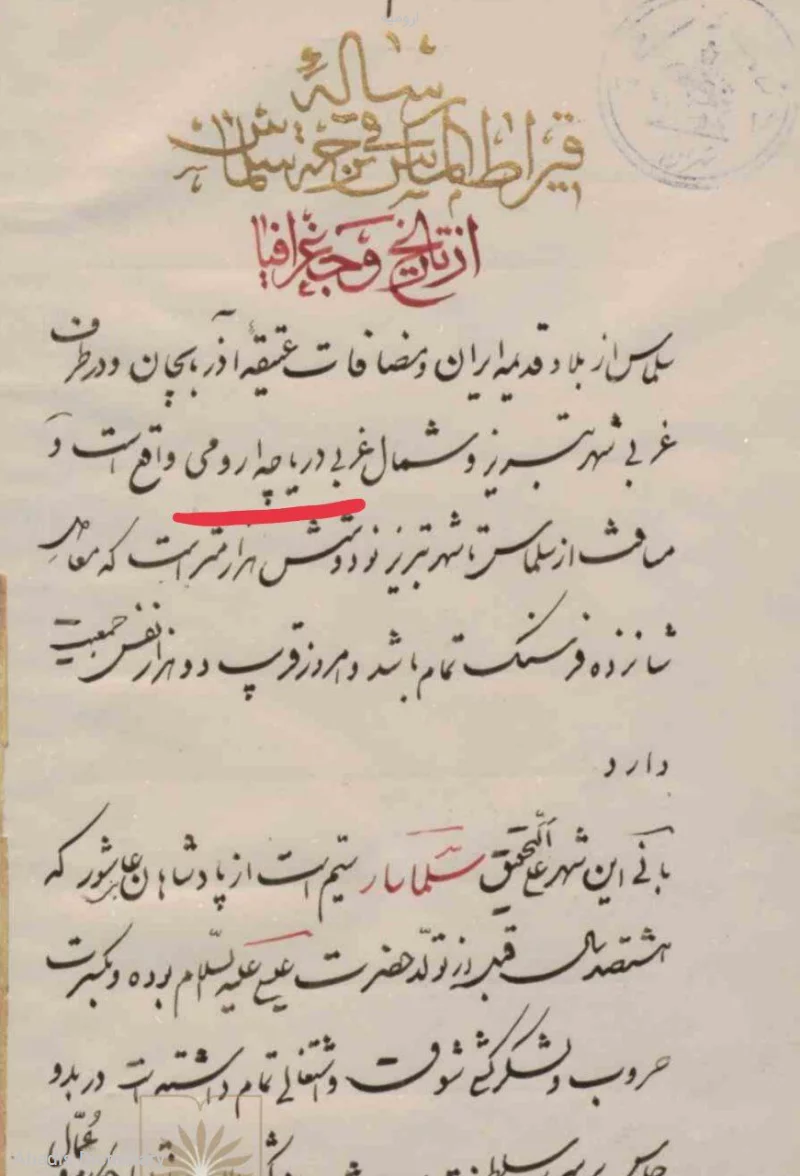 رسالهٔ
قیراط الماس فی ترجمة سلماس
از تاریخ و جغرافیا
سلماس از بلاد قدیمه ایران و مضافات عتیقه آذربایجان و در طرف
غربی شهر تبریز و شمال غربی دریاچه ارومی واقع است و
مسافت از سلماس تا شهر تبریز نود و شش هزار متر است که معادل
شانزده فرسنک تمام باشد و امروز قرب ده هزار نفس جمعیت
دارد
بانی این شهر علی التحقیق سلماسار سیّم است از پادشاهان عاشور که
هشتصد سال قبل از تولّد حضرت عیسی علیه السّلام بوده و بکثرت
حروب و لشکر کشی شوق و اشتغالی تمام داشته است در بدو
عُمّال